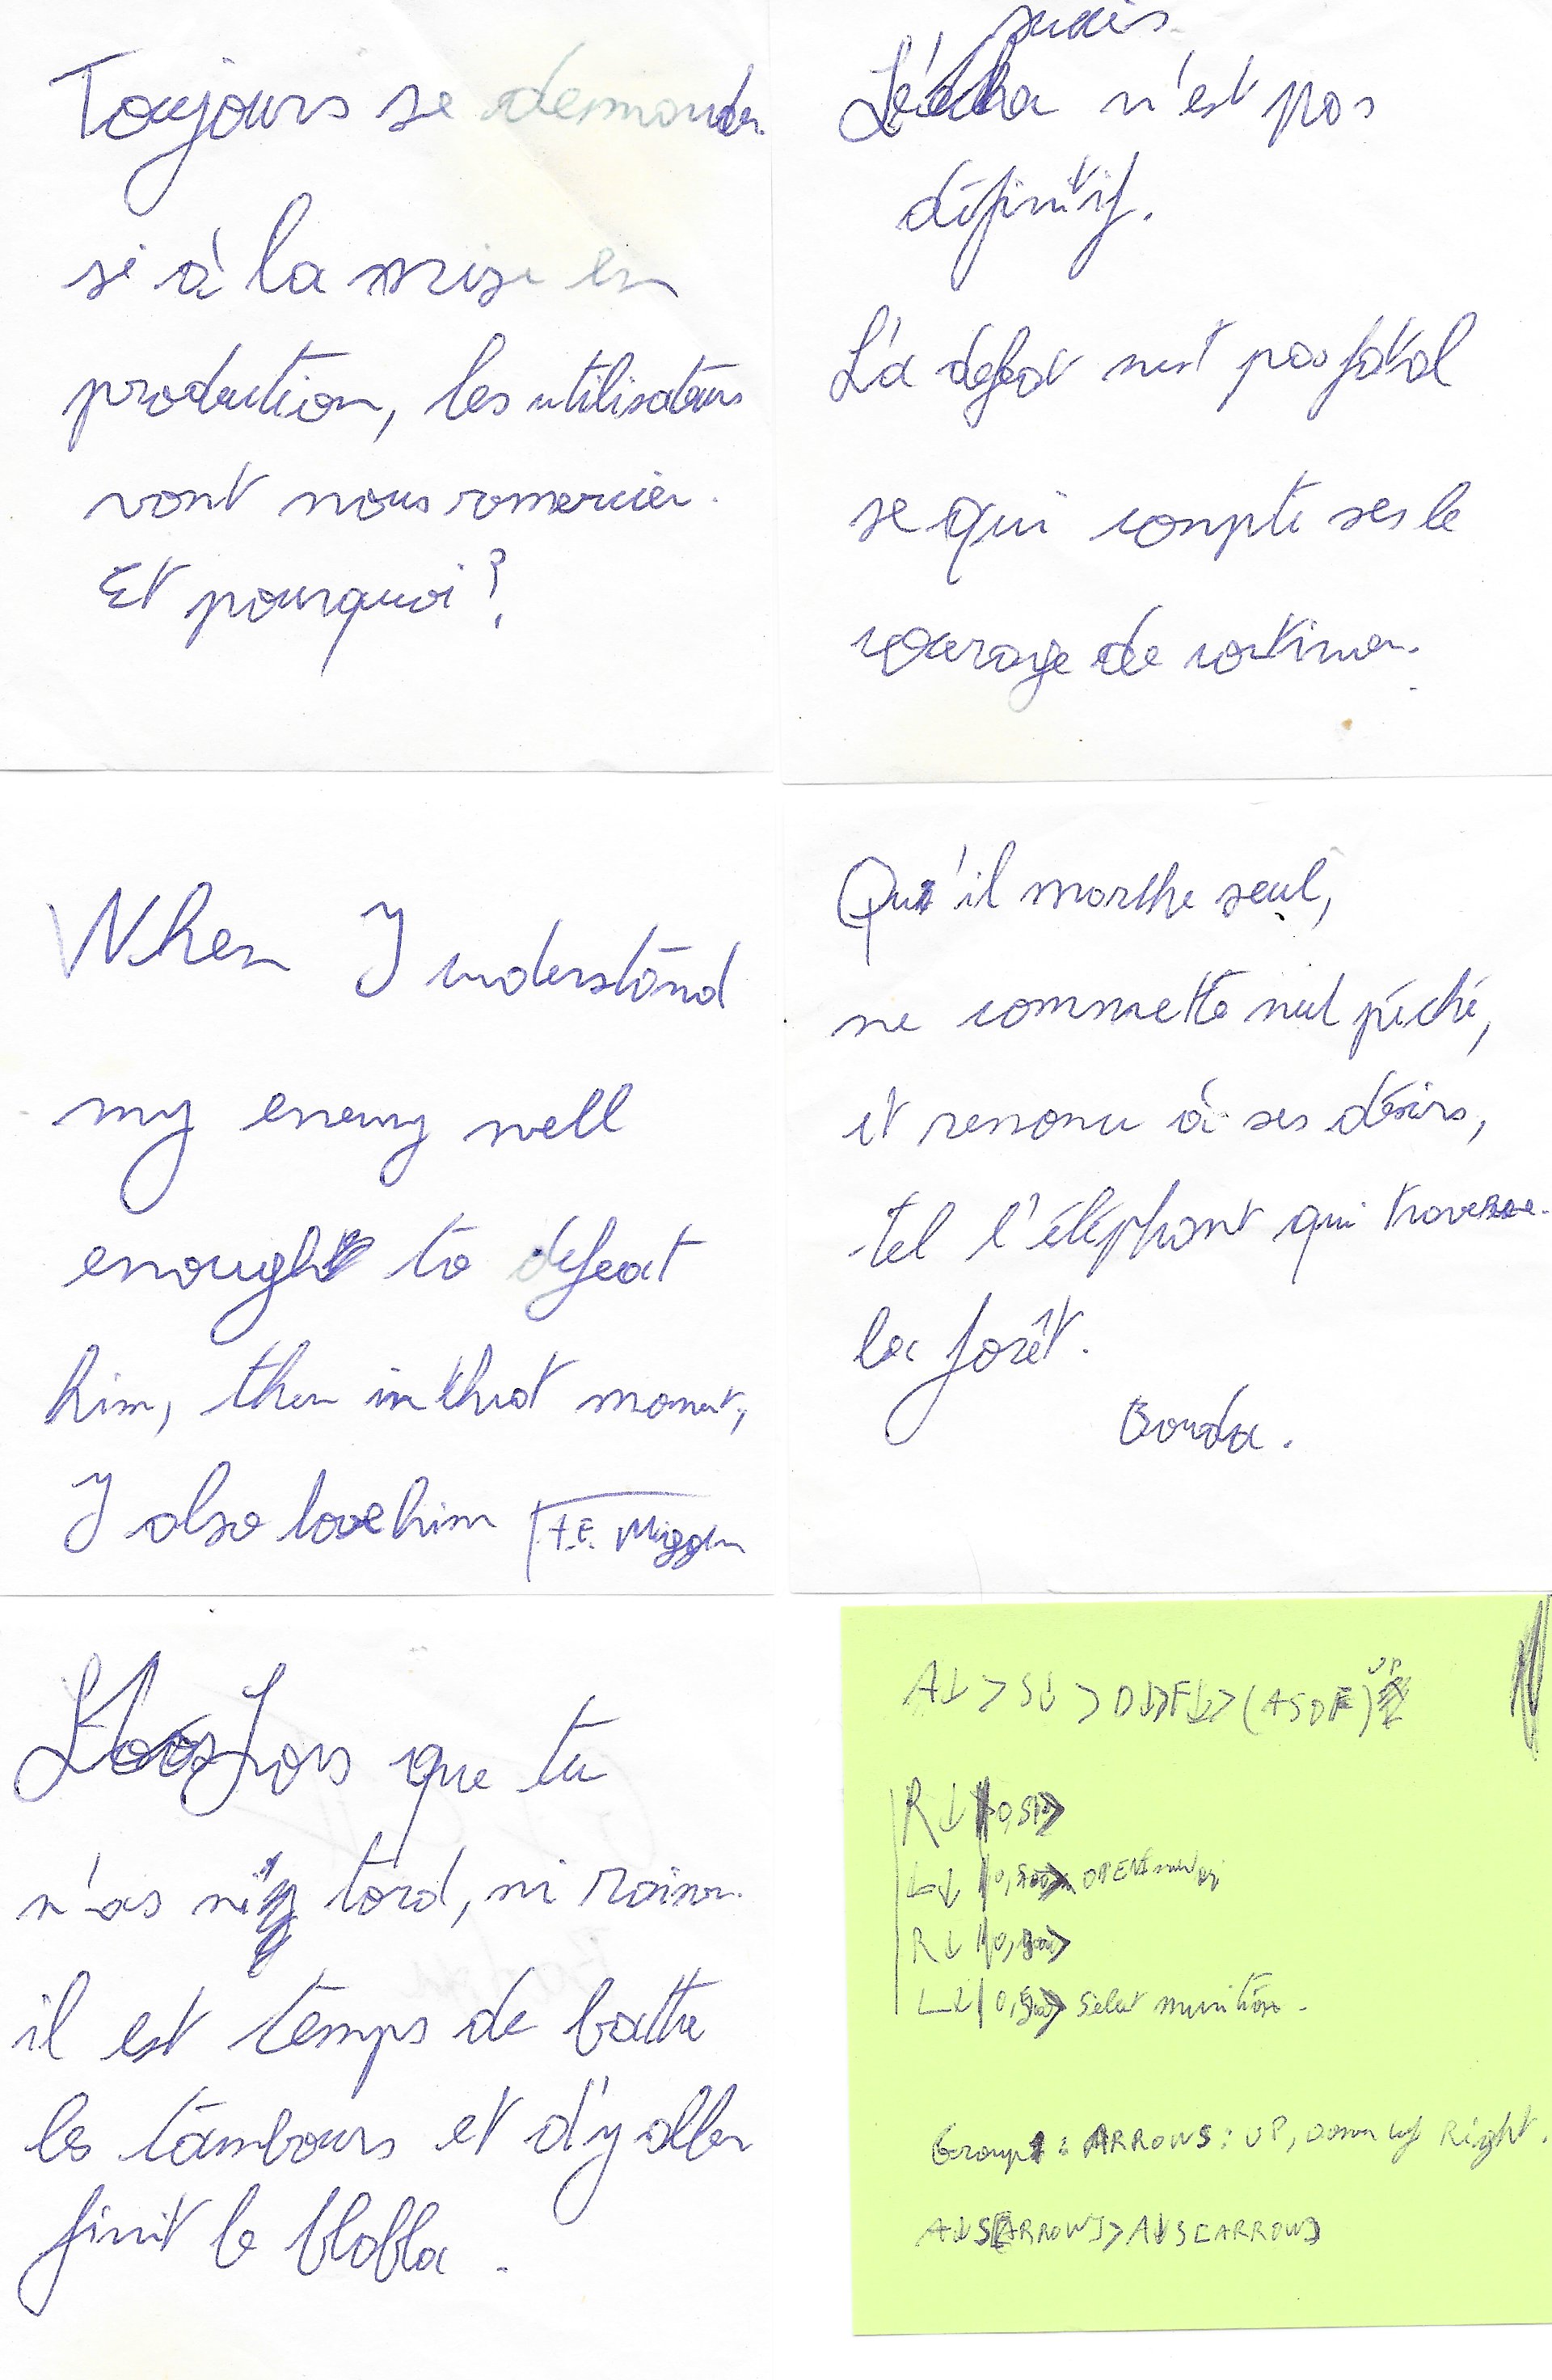 Toujours se demander
si à la mise en
production, les utilisateurs
vont nous remercier.
Et pourquoi?
succès
L' n'est pas
définitif.
La defeat nest pas fatal
se qui compte ses le
courage de continuer.
When I understand
my enemy well
enough to defeat
him, then in that moment,
I also love him
Qu'il marche seul,
ne commette nul péché,
et renonce à ses désirs,
tel l'éléphant qui traverse
la forêt.
Bouda.
Lors que tu
n'as ni tord, ni raison.
il est temps de battre
les tambours et d'y aller
finit le blabla.
A↓ > S↓ > D↓>F↓>(ASDF) UP
R↓ 0,5
L↓ 0, OPEN
R↓ 0,
L↓ 0, Select munition.
Group1 : ARROWS: UP, Down left Right.
A↓S[ARROWS]>A↓S[ARROWS]